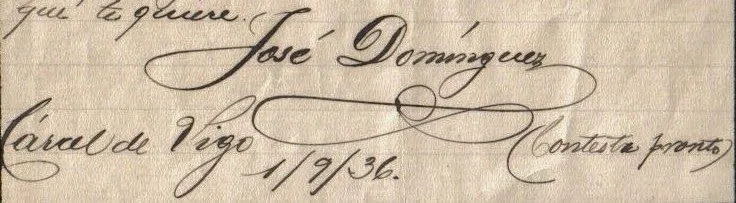 que te quiere.
José Domínguez
Cárcel de Vigo
1/9/36.
(Contesta pronto)